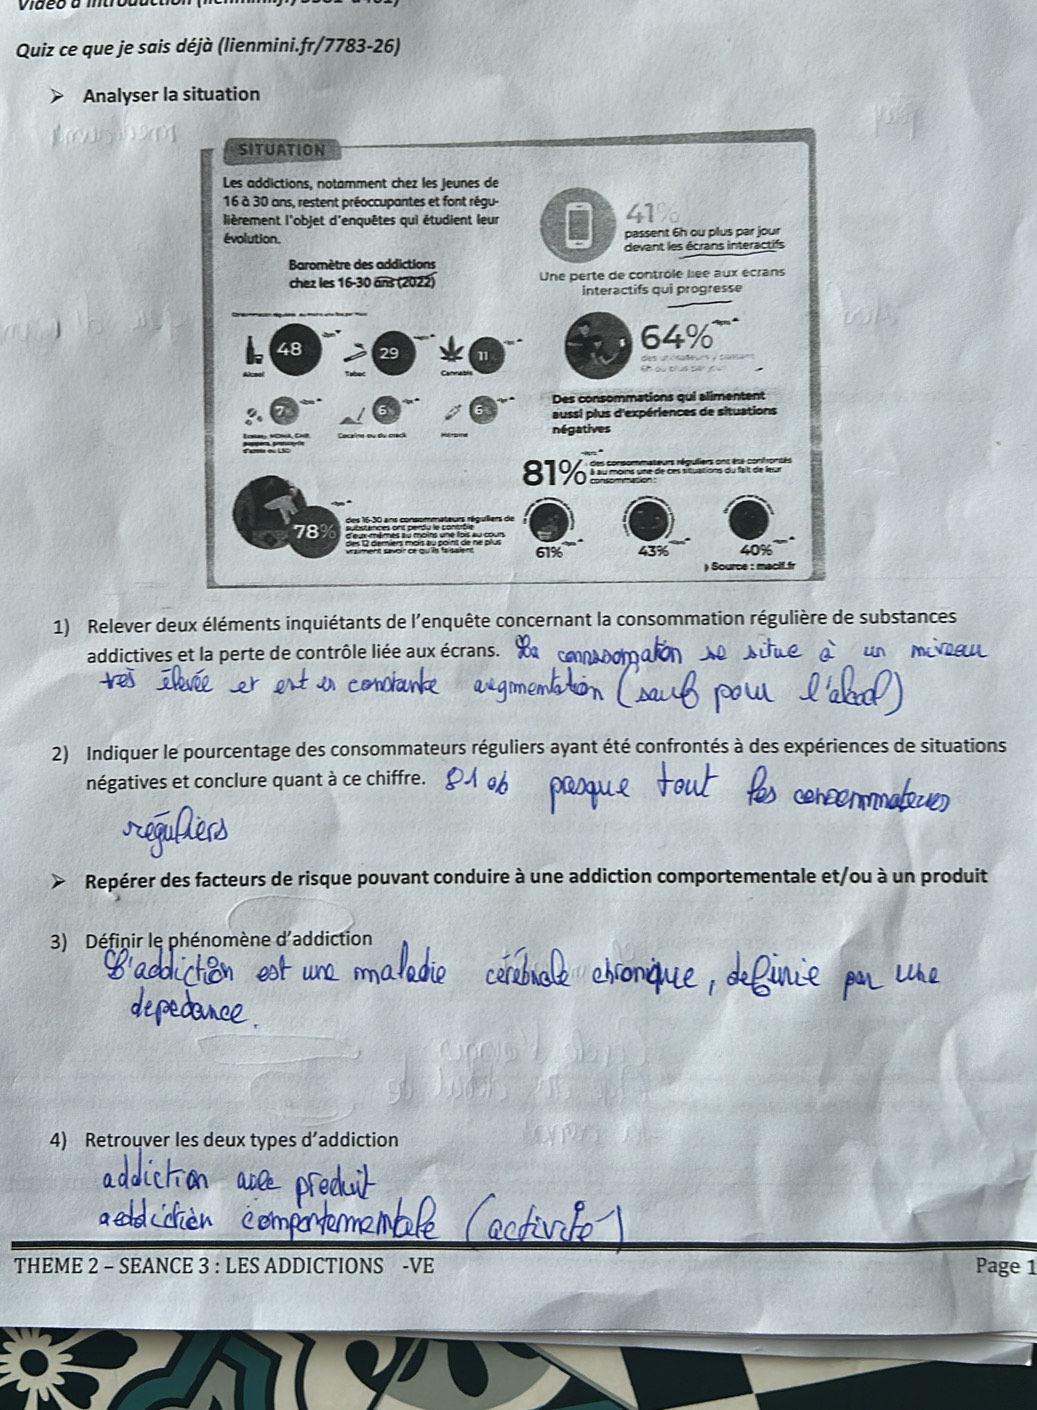 Quiz ce que je sais déjà (lienmini.fr/7783-26)
➢ Analyser la situation
SITUATION
Les addictions, notamment chez les jeunes de
16 à 30 ans, restent préoccupantes et font régu-
lièrement l'objet d'enquêtes qui étudient leur
évolution.
Baromètre des addictions
chez les 16-30 ans (2022)
48
29
11
Alcool
Tabac
Cannabis
7%
6%
6%
Ecstasy, MDMA, GHB,
poppers, protoxyde
d'azote ou LSD
Cocaïne ou du crack
Héroïne
78%
des 16-30 ans consommateurs réguliers de
substances ont perdu le contrôle
d'eux-mêmes au moins une fois au cours
des 12 derniers mois au point de ne plus
vraiment savoir ce qu'ils faisaient
41%
passent 6h ou plus par jour
devant les écrans interactifs
Une perte de contrôle liée aux écrans
interactifs qui progresse
64%
des utilisateurs y passant
6h ou plus par jour
Des consommations qui alimentent
aussi plus d'expériences de situations
négatives
81%
des consommateurs réguliers ont été confrontés
à au moins une de ces situations du fait de leur
consommation :
61%
43%
40%
Source : macif.fr
1) Relever deux éléments inquiétants de l'enquête concernant la consommation régulière de substances
addictives et la perte de contrôle liée aux écrans. La conssomation se situe à un niveau
très élevée et est en constante augmentation (sauf pour l'alcool)
2) Indiquer le pourcentage des consommateurs réguliers ayant été confrontés à des expériences de situations
négatives et conclure quant à ce chiffre. 81 % presque tout les consommateurs
réguliers
➢ Repérer des facteurs de risque pouvant conduire à une addiction comportementale et/ou à un produit
3) Définir le phénomène d'addiction
L'addiction est une maladie cérébrale chronique, definie par une
depedance.
4) Retrouver les deux types d'addiction
addiction avec produit
addiction comportementale (activité)
THEME 2 – SEANCE 3 : LES ADDICTIONS -VE
Page 1